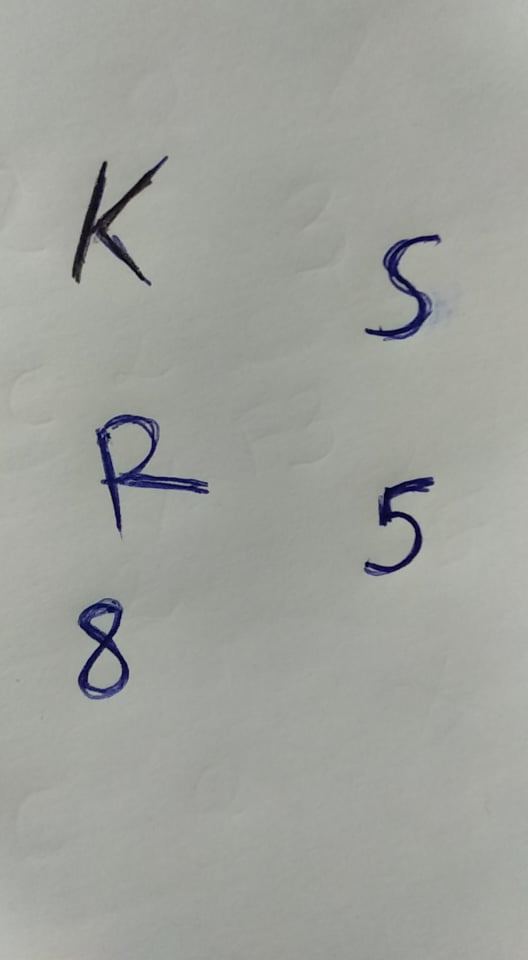 K
S
R
5
8